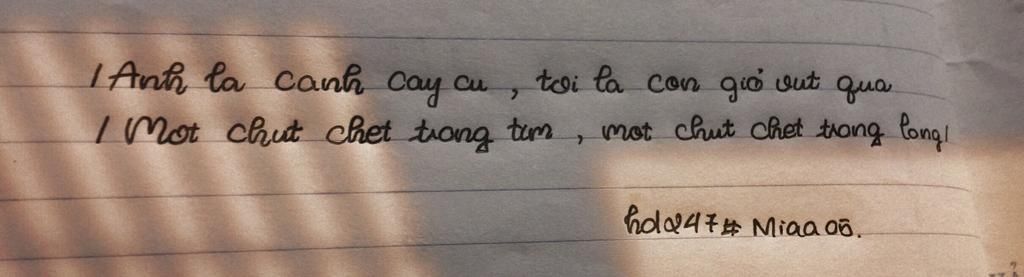 /Anh la canh cay cu, toi la con gió vut qua
/ Mot chut chet trong tim, mot chut chet trong long/
hdo247# Miaa05.